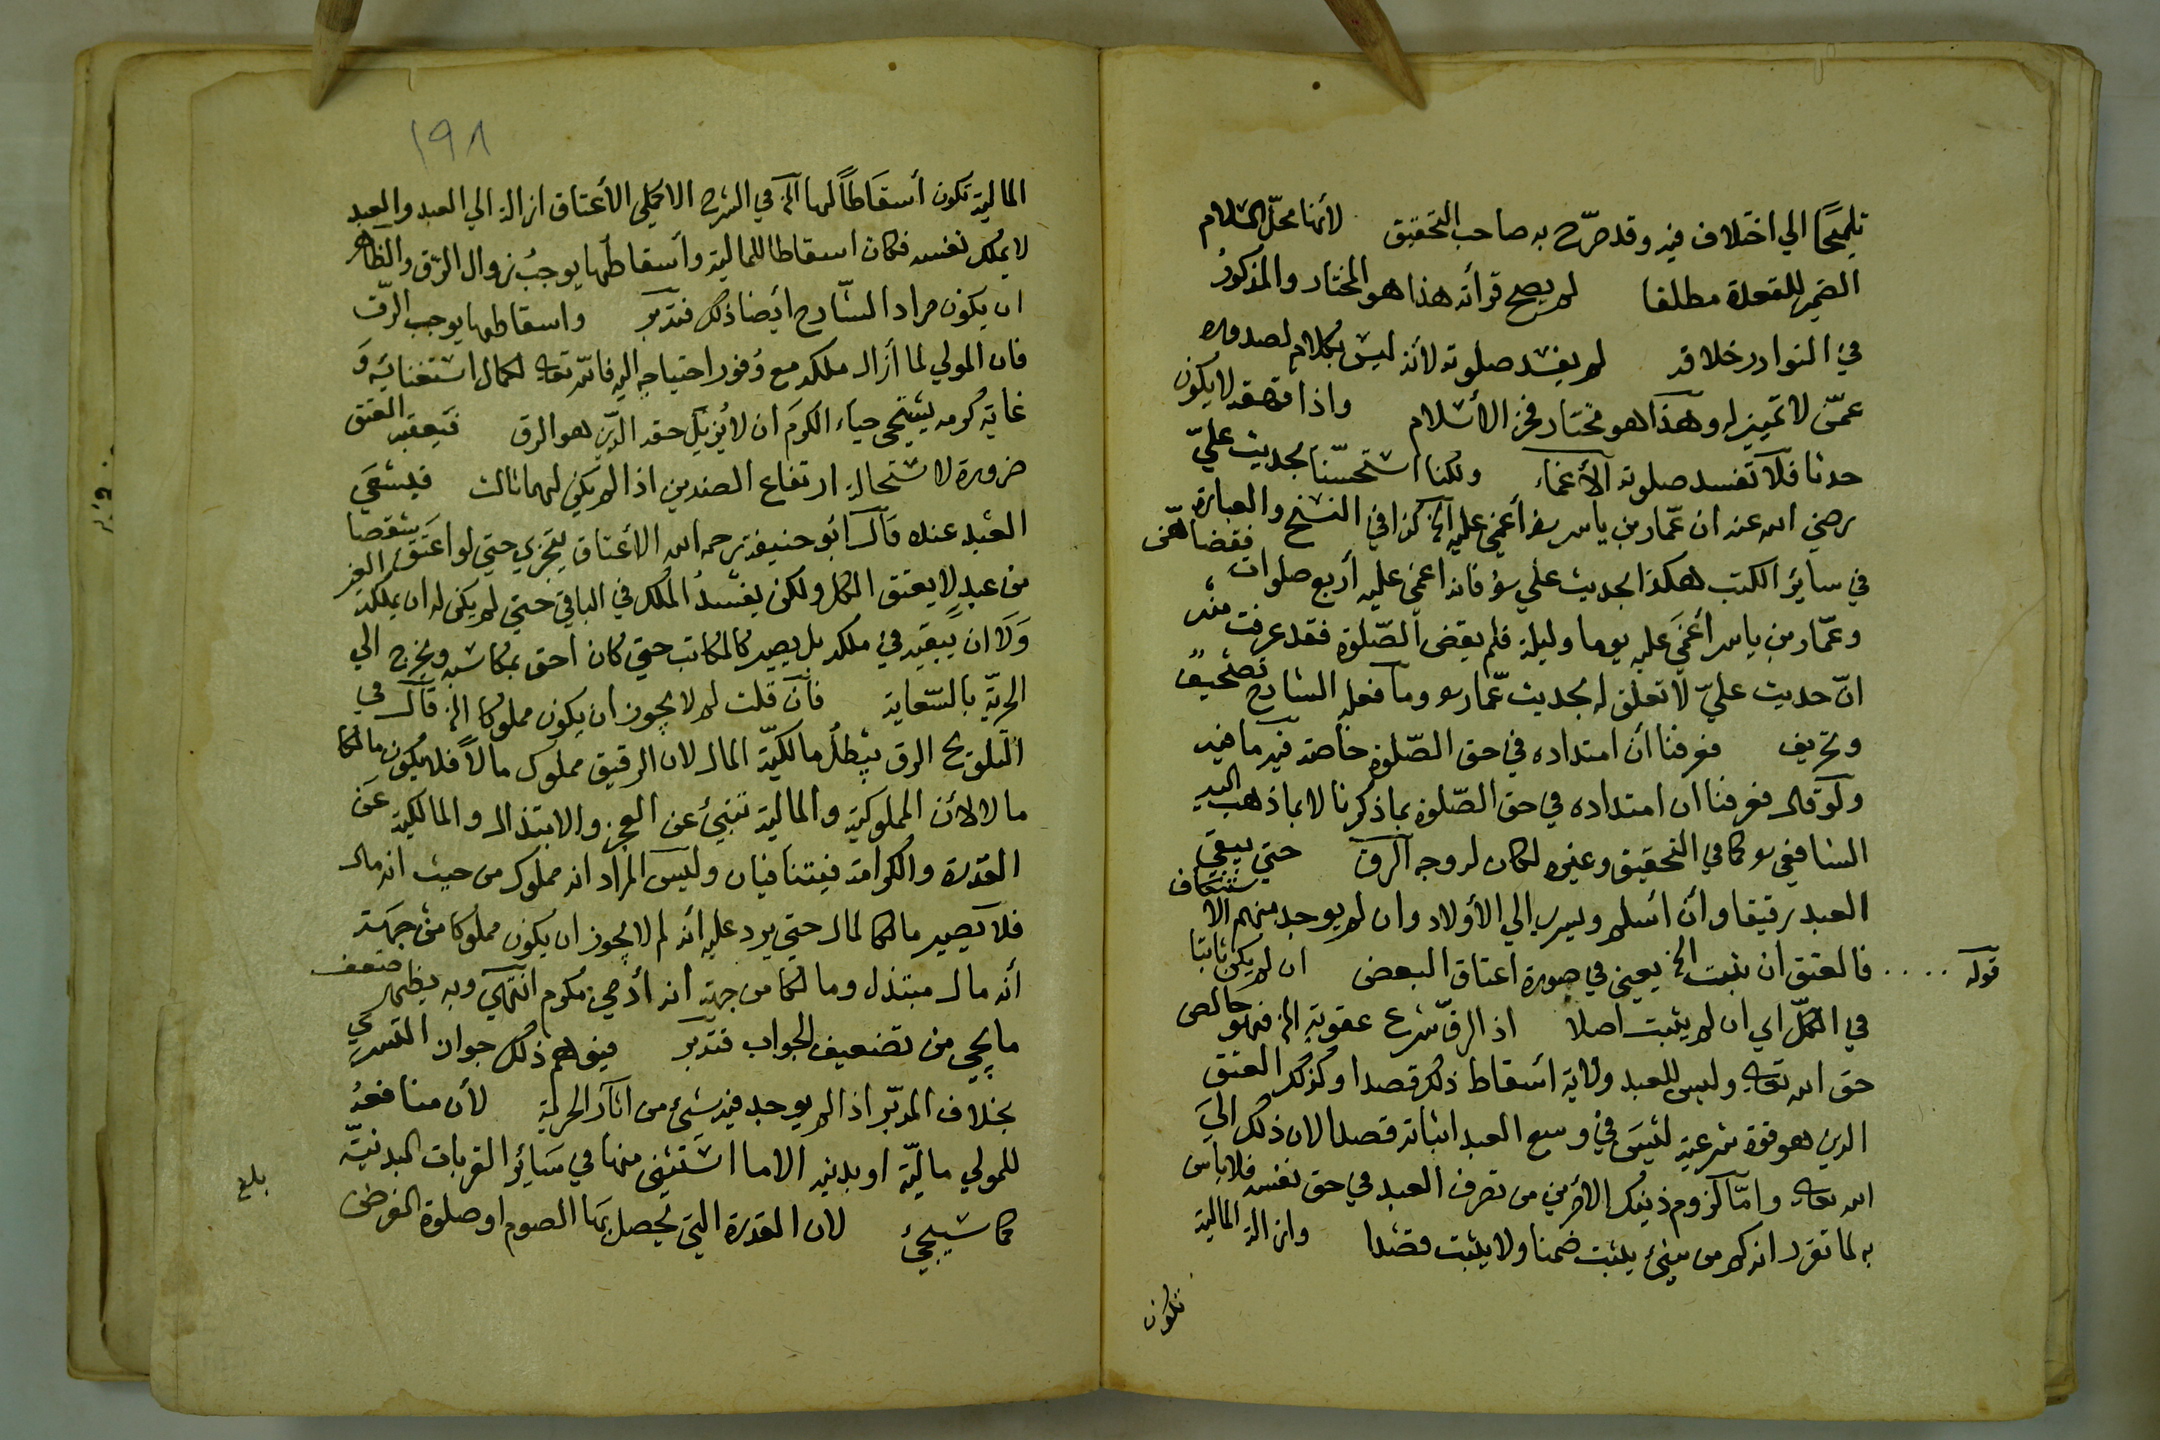 تلميحًا الي اختلاف فيه وقد صرّح به صاحب التحقيق لأنها محلّ السلام
الضمير للقعدة مطلقا لم يصح قرأته هذا هو المختار والمذكور
في النوادر خلافه لم يفسد صلوته لأنه ليس بكلام لصدوره
عمّن لا تميز له وهذا هو مختار فخر الأسلام واذا قهقه لا يكون
حدثا فلا تفسد صلوته الأغماء ولكنا استحسنّا بحديث عليّ
رضي الله عنه ان عمّار بن ياسر رض أغمي عليه الخ كذا في النسخ والعبارة
في سائر الكتب هكذا لحديث علي رض فانه اغمي عليه أربع صلوات فقضاهن
وعمّار بن ياسر أغمي عليه يوما وليلة فلم يقض الصّلوة فقد عرفت منه
انّ حديث عليّ لا تعلق له بحديث عمّار رض وما فعله الشارح تصحيف
وتحريف فعرفنا أن امتداده في حق الصّلوة خاصة فيه ما فيه
ولو قال فعرفنا ان امتداده في حق الصّلوة بما ذكرنا لا بما ذهب اليه
الشافعي رض كما في التحقيق وغيره لكان له وجه الرق حتي يبقي
العبد رقيقا وأن أسلم ويسري الي الأولاد وان لم يوجد منهم الاستنكاف
قوله .... فالعتق ان ثبت الخ يعني في صورة اعتاق البعض ان لم يكن ثابتا
في الكلّ اي ان لم يثبت اصلا اذ الرقّ شرع عقوبة الخ فهو خالص
حق الله تعالي وليس للعبد ولاية أسقاط ذلك قصدا وكذلك العتق
الذي هو قوة شرعية ليس في وسع العبد اثباته قصدا لان ذلك الي
الله تعالي وامّا لزوم ذينك الأمرين من تصرف العبد في حق نفسه فلا بأس
به لما تقرر انه كم من شئ يثبت ضمنا ولا يثبت قصدا وازالة المالية
تكون
١٩٨
المالية تكون أسقاطاً لها الخ في الشرح الاكملي الأعتاق ازالة الي العبد والعبد
لا يملك نفسه فكان اسقاطا للمالية وأسقاطها يوجب زوال الرق والظاهر
ان يكون مراد الشّارح أيضا ذلك فتدبر واسقاطها يوجب الرّق
فان المولي لما أزال ملكه مع وُفور احتياجه اليه فانّه تعالي لكمال استغنائه وَ
غاية كرمه يستحي حياء الكرم ان لا يزيل حقه الذي هو الرق فيعقبه العتق
ضرورة لاستحالة ارتفاع الضدين اذا لم يكن لهما ثالث فيسعي
العبد عنده قال أبو حنيفة رحمه الله الأعتاق يتجزي حتي لو اعتق شقصا
من عبدٍ لا يعتق الكل ولكن يفسدُ الملك في الباقي حتي لم يكن له ان يملكه الغير
وَلا ان يبقيه في ملكه بل يصير كالمكاتب حتي كان احق بمكاسبه ويخرج الي
الحريّة بالسّعاية فان قلت لم لا يجوز ان يكون مملوكا الخ قال في
التلويح الرق يبطلُ مالكيّة المال لان الرقيق مملوك مالاً فلا يكون مالكا
مالا لأن المملوكية والمالية تنبئ عن العجز والابتذال والمالكية عن
القدرة والكرامة فيتنافيان وليس المراد انه مملوك من حيث انه مال
فلا يصير مالكا لمال حتي يرد عليه أنه لم لا يجوز ان يكون مملوكا من جهة
أنه مال مبتذل ومالكا من جهة انه أدمي مكرم انتهي وبه يظهر ضعف
ما يجئ من تضعيف الجواب فتدبر فيوهم ذلك جواز التسري
بخلاف المدبّر اذا لم يوجد فيه شئ من اثار الحرية لأن منافعهُ
للمولي ماليّة او بدنية الا ما استثني منها في سَائر القربات البدنيّة
كما سيجئ لان القدرة التي يحصل بها الصوم او صلوة الفرض
بلغ